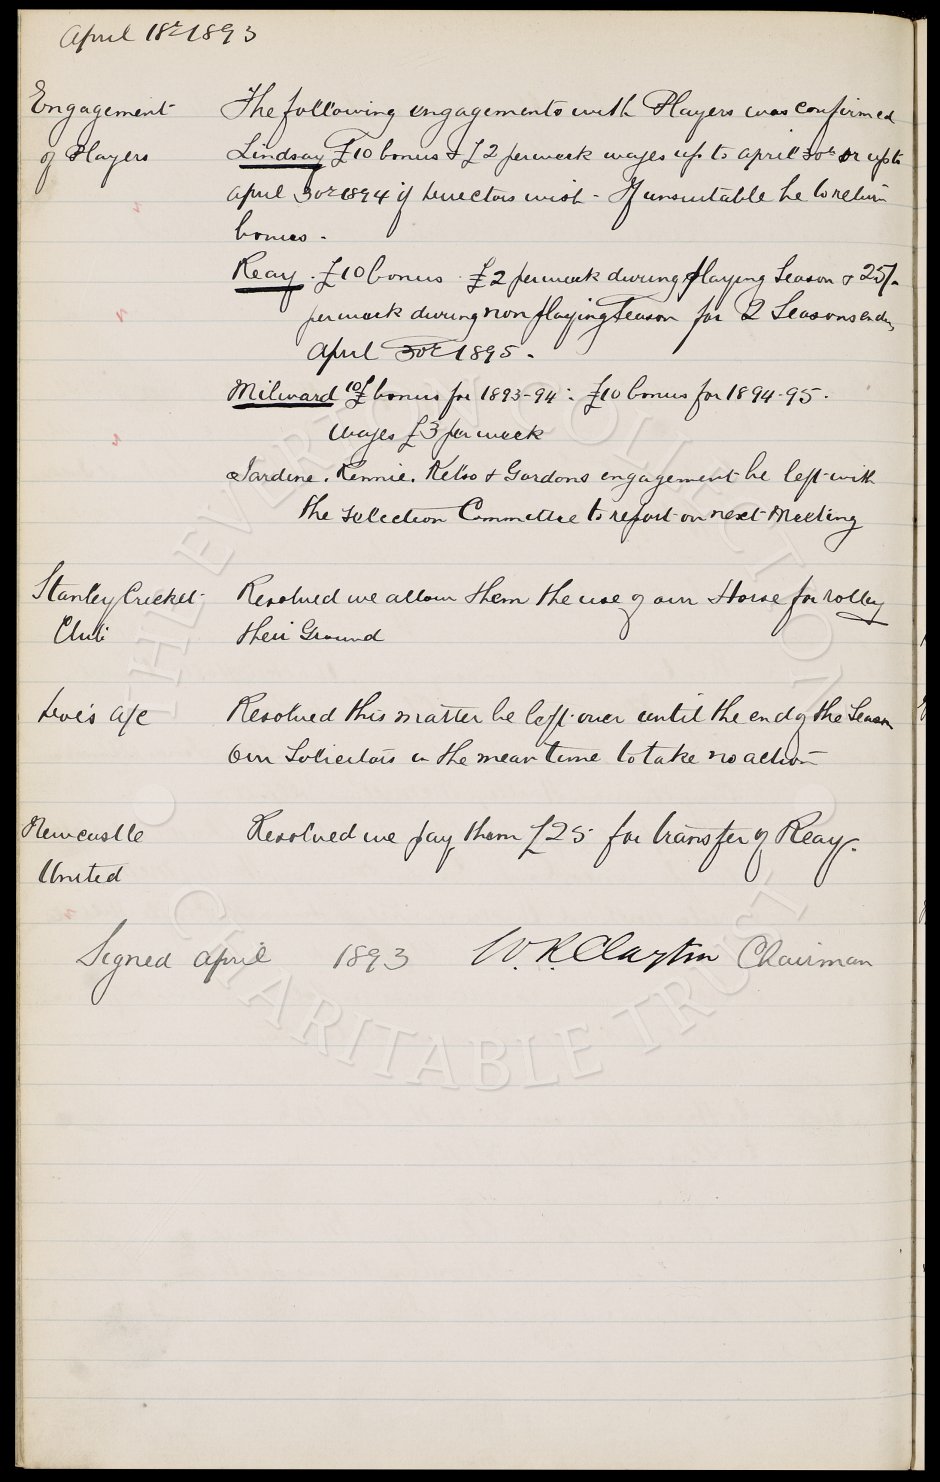 April 18th 1893
Engagement
of Players
The following engagements with Players was confirmed
Lindsay £10 bonus & £2 per week wages up to April 30th or up to
April 30th 1894 if Directors wish - If unsuitable he to return
bonus -
Reay. £10 bonus. £2 per week during playing Season & 25/-
per week during non playing Season for 2 Seasons ending
April 30th 1895.
Milward 10£ bonus for 1893-94: £10 bonus for 1894-95.
Wages £3 per week
Jardine. Rennie. Kelso & Gordons engagement be left with
the Selection Committee to report on next Meeting
Stanley Cricket
Club
Resolved we allow them the use of our Horse for rolling
their Ground
A/c
Resolved this matter be left over until the end of the Season
Our Solicitors in the mean time to take no action
Newcastle
United
Resolved we pay them £25 for transfer of Reay.
Signed April 1893 W. R. Clayton Chairman
THE EVERTON COLLECTION
CHARITABLE TRUST